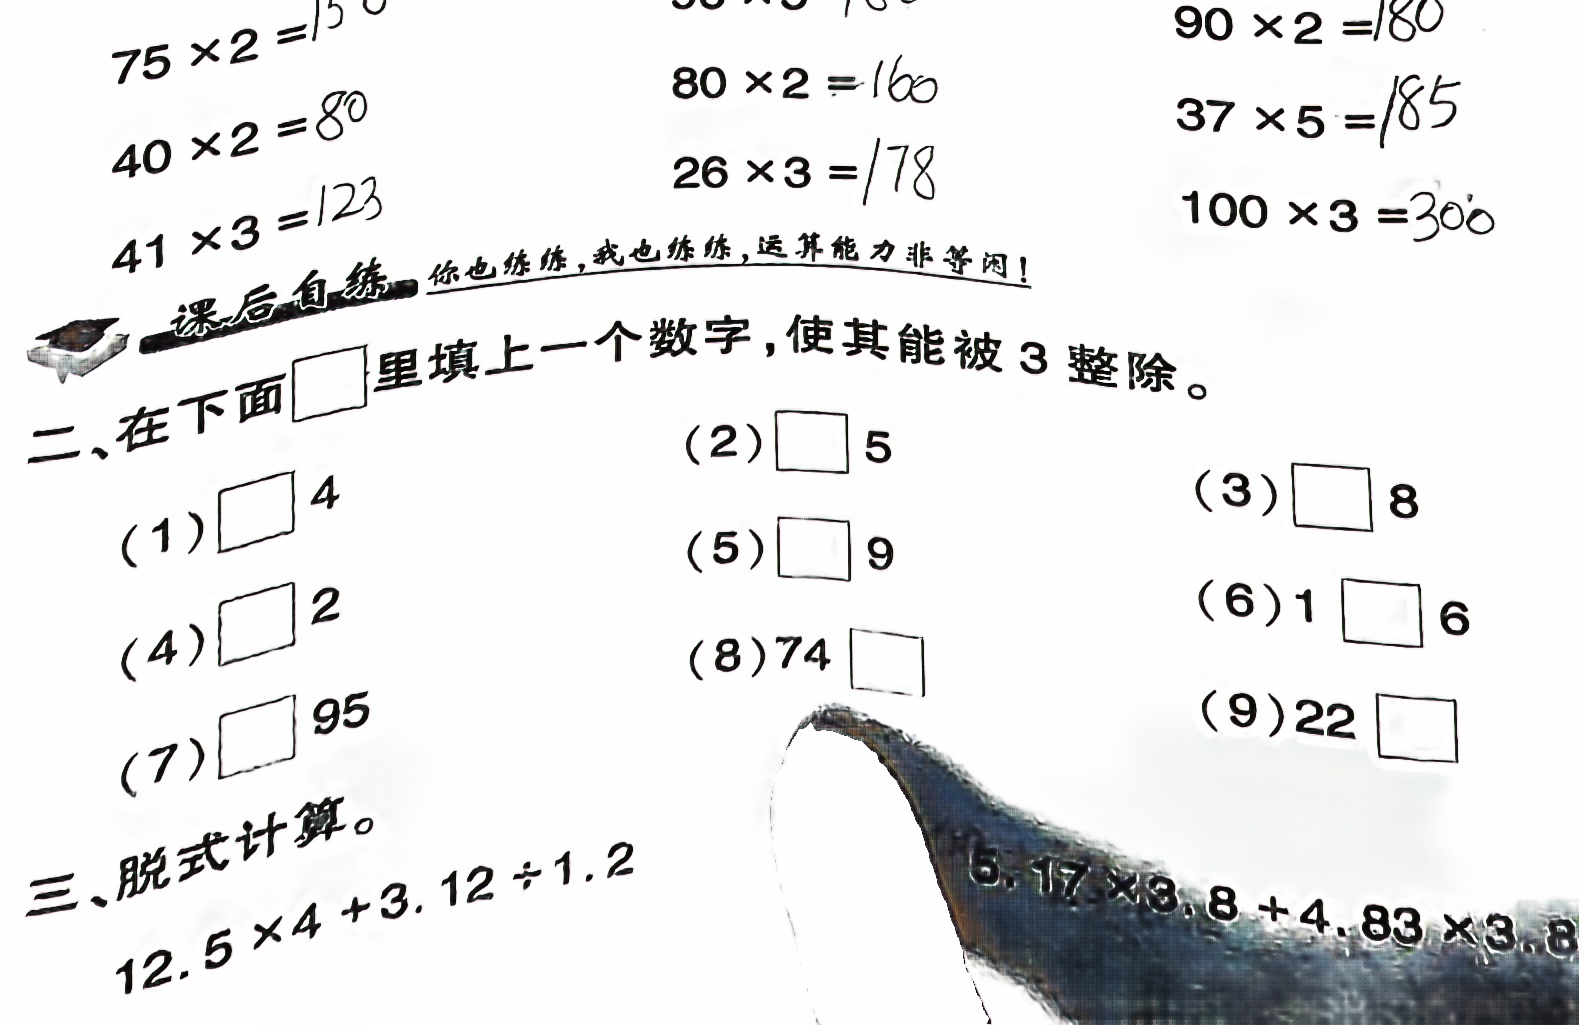 75×2=150
80×2=160
90×2=180
40×2=80
26×3=178
37×5=185
41×3=123
100×3=300
课后自练 你也练练,我也练练,运算能力非等闲!
二、在下面□里填上一个数字,使其能被3整除。
(1)□4 (2)□5 (3)□8
(4)□2 (5)□9 (6)1□6
(7)□95 (8)74□ (9)22□
三、脱式计算。
12.5×4+3.12÷1.2 5.17×3.8+4.83×3.8